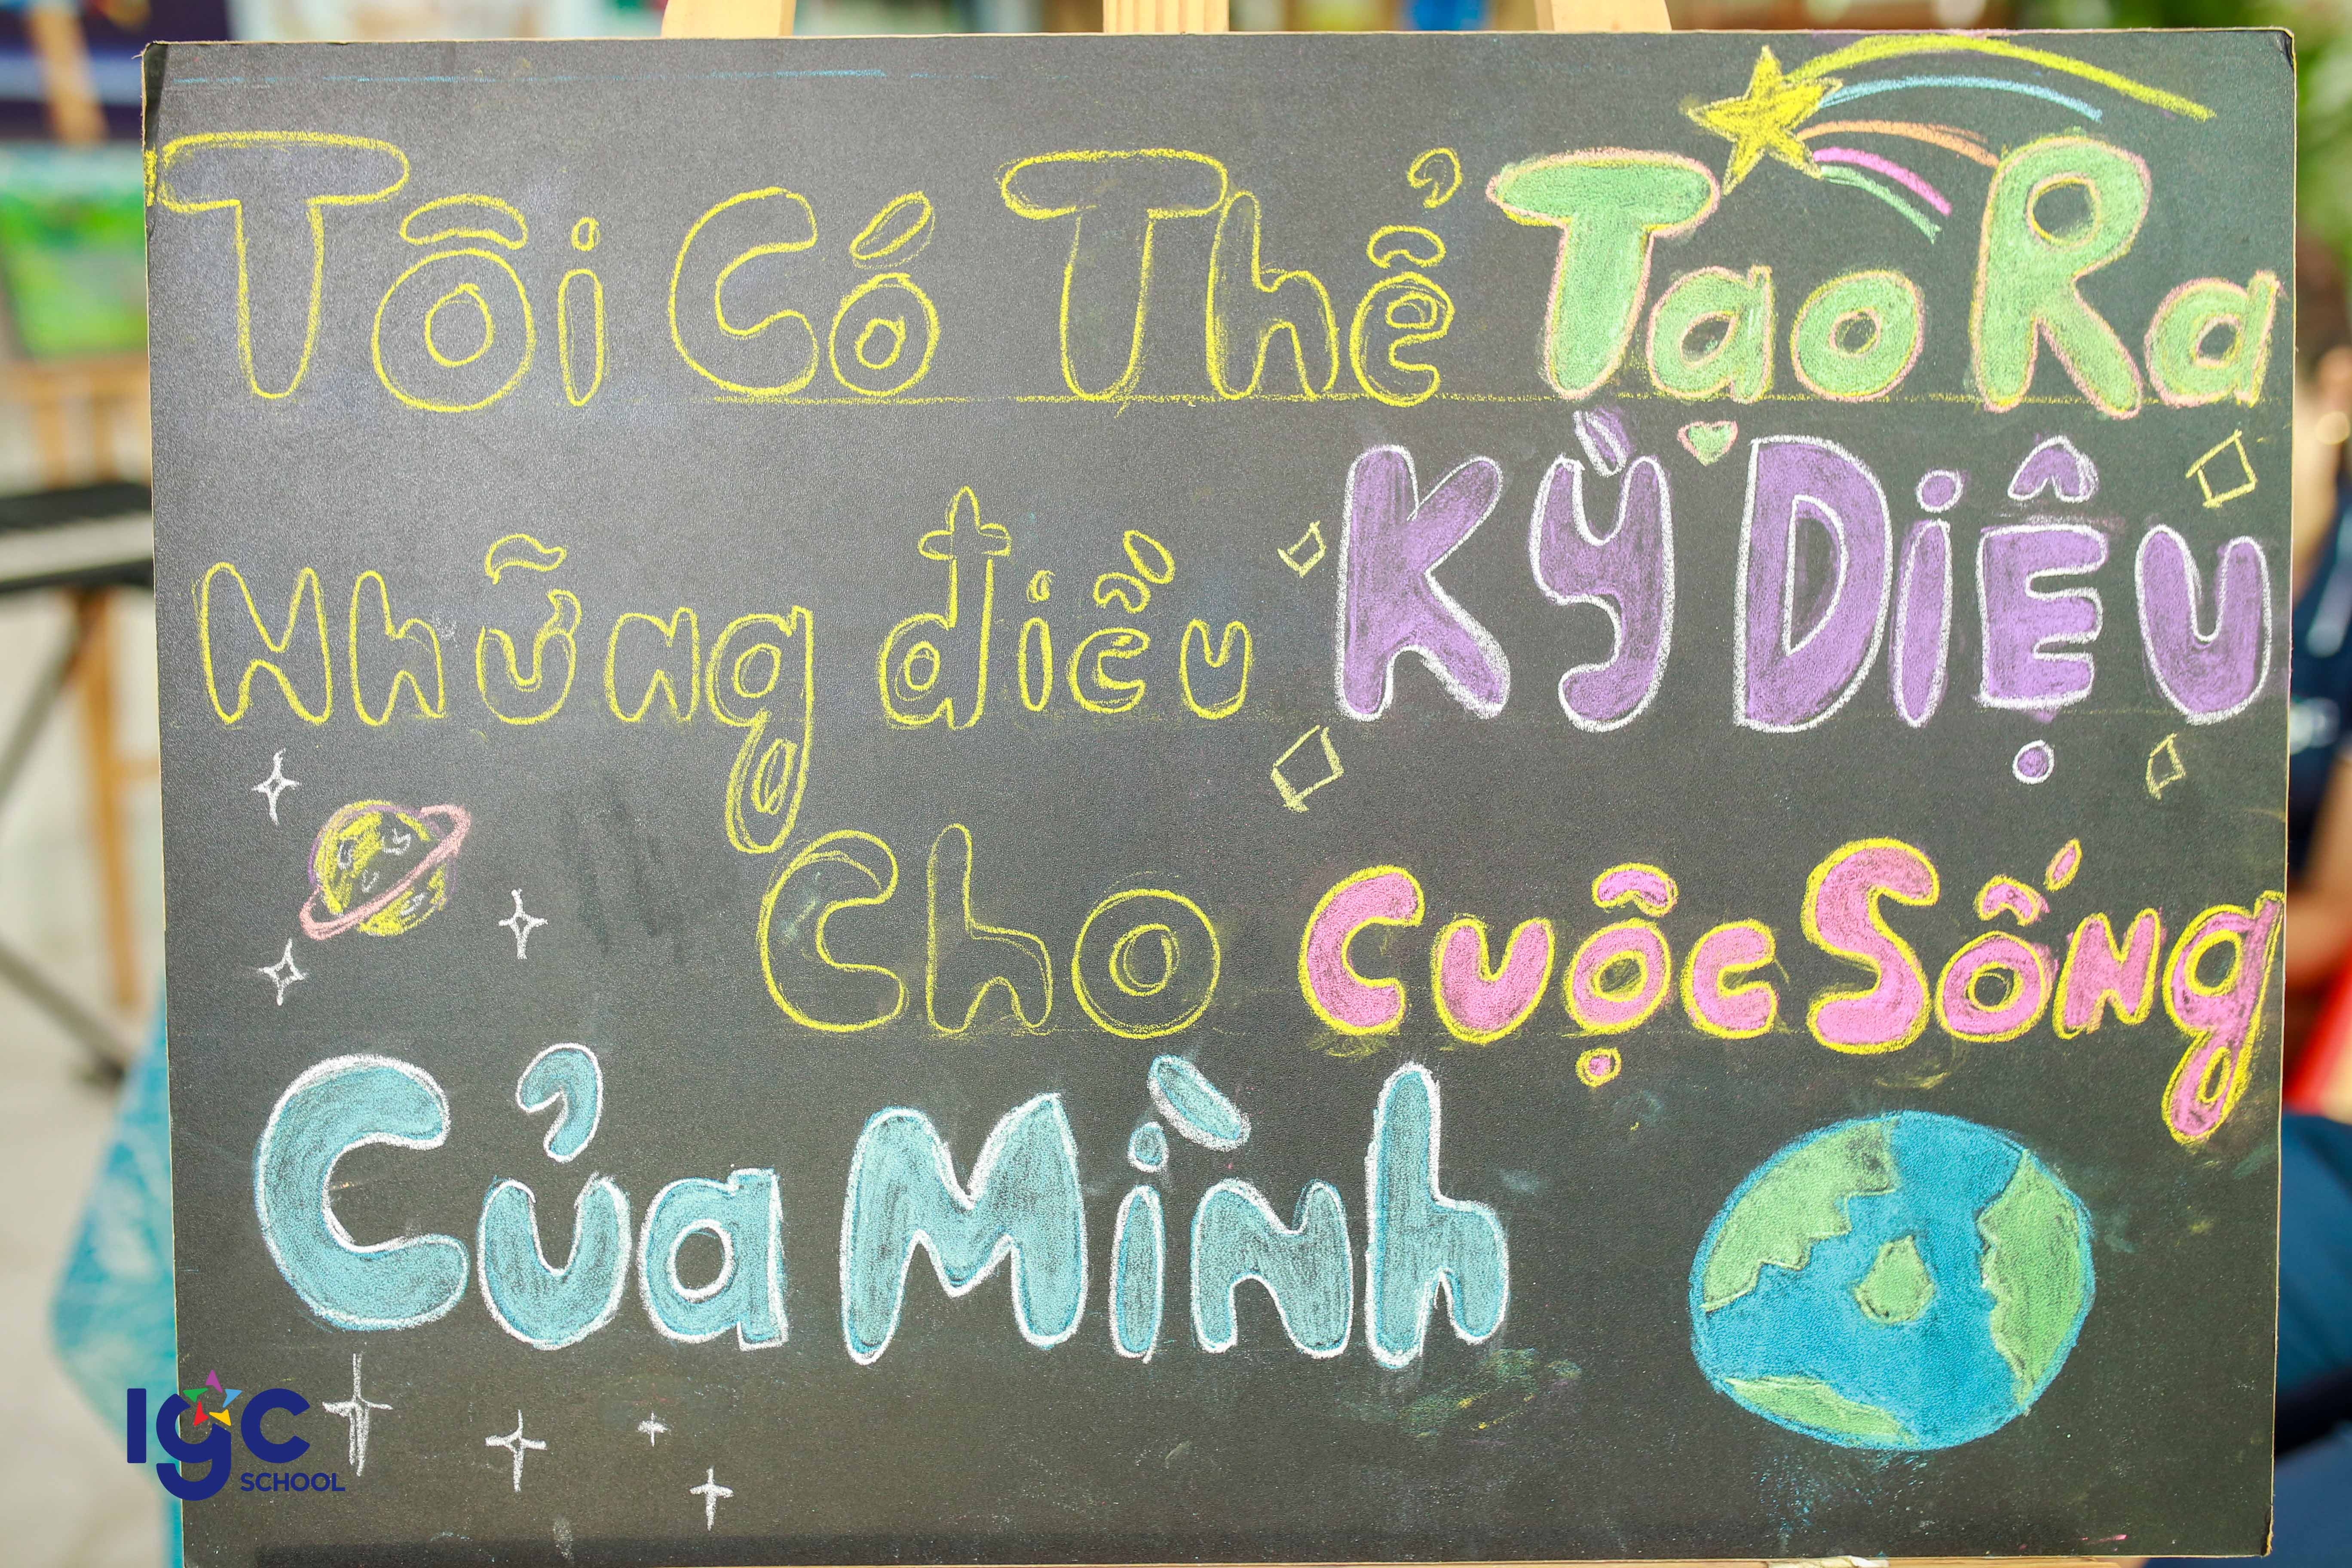 Tôi Có Thể Tạo Ra
Những điều Kỳ DiỆU
Cho cuộc Sống
Của Mình
IGC
SCHOOL